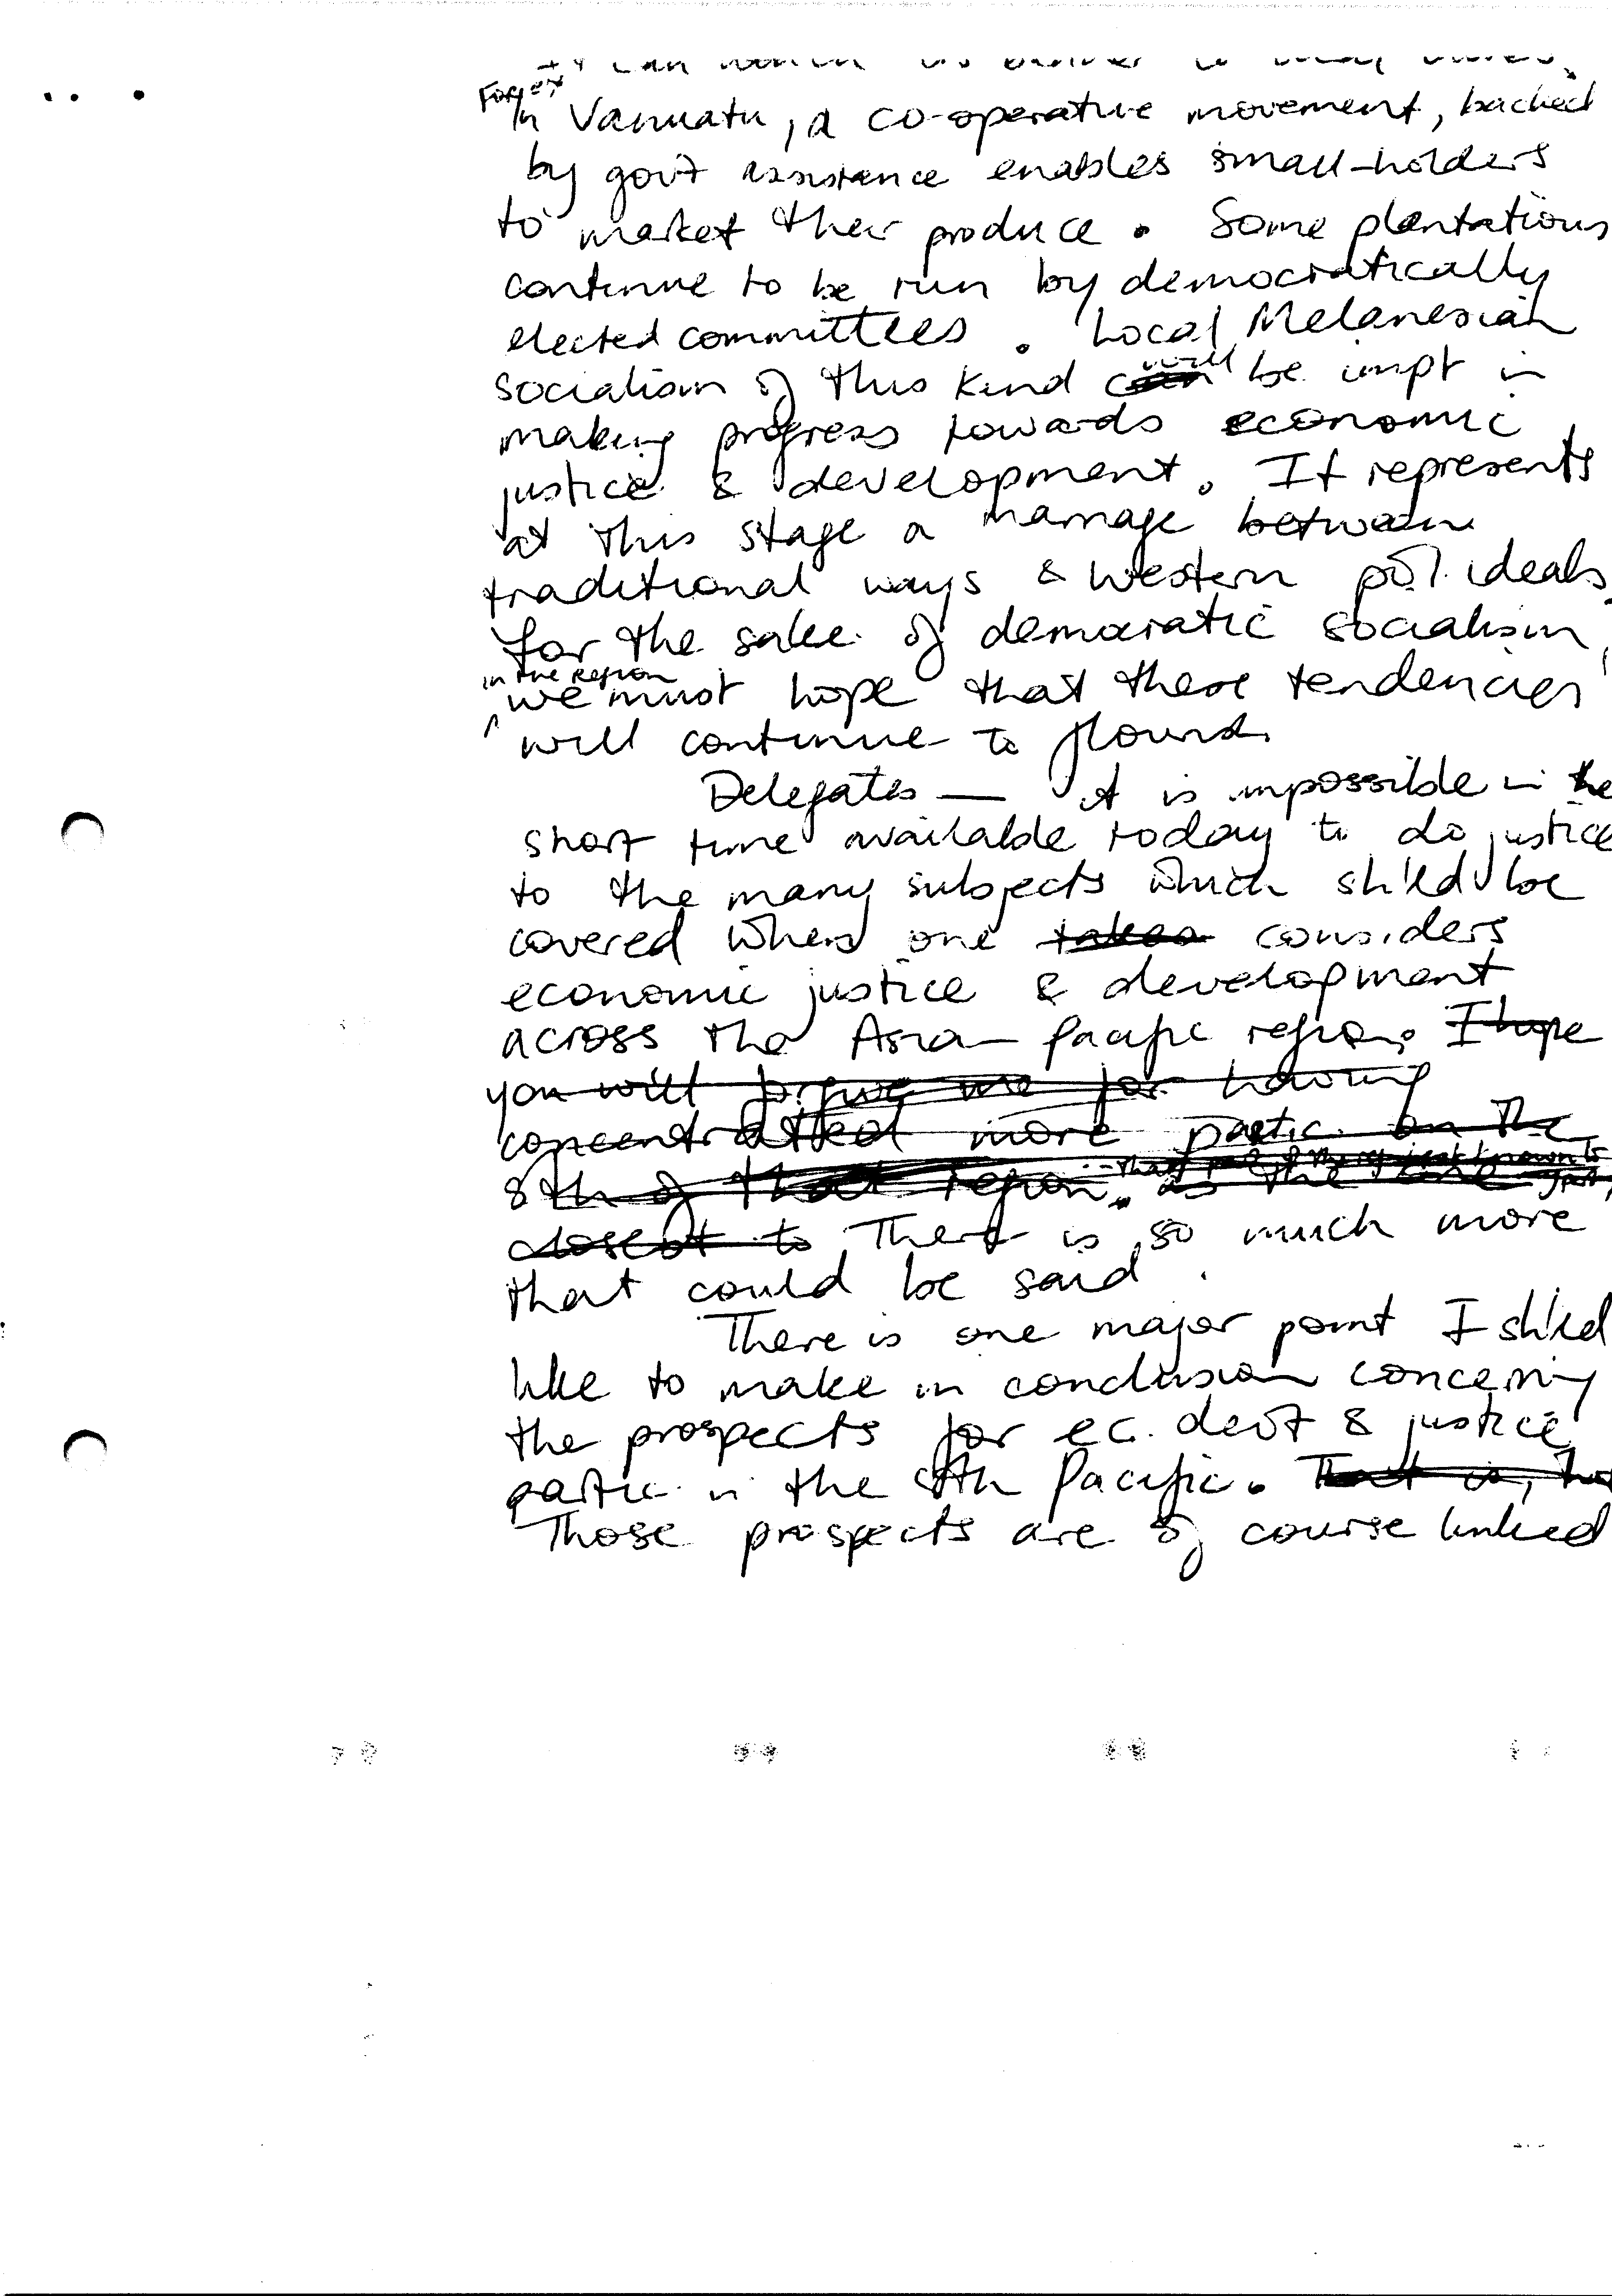 For ex
in Vanuatu, a co-operative movement, backed
by gov't assistance enables small-holders
to market their produce. Some plantations
continue to be run by democratically
elected committees. Local Melanesian
socialism of this kind can will be impt in
making progress towards economic
justice & development. It represents
at this stage a marriage between
traditional ways & western pol. ideals.
For the sake of democratic socialism,
in the region
we must hope that these tendencies
will continue to flourish.
Delegates — it is impossible in the
short time available today to do justice
to the many subjects which sh'ld be
covered when one takes considers
economic justice & development
across the Asia Pacific region. I hope
you will forgive me for having
concentrated more partic. on the
that part of the region best known to
8th of that region. as the
closest to There is so much more
that could be said.
There is one major point I sh'ld
like to make in conclusion concerning
the prospects for ec. dev't & justice
partic. in the Sth Pacific. That is,
Those prospects are of course linked